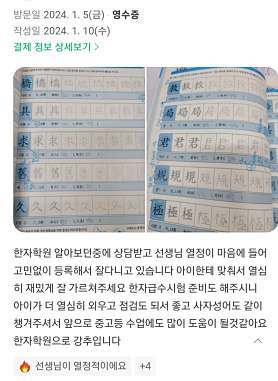 방문일 2024. 1. 5(금) · 영수증
작성일 2024. 1. 10(수)
결제 정보 상세보기 >
橋 橋 橋
具 具 具
求 求 求
舊 舊 舊
久 久 久
教 教 教
局 局 局
君 君 君
規 規 規
極 極 極
한자학원 알아보던중에 상담받고 선생님 열정이 마음에 들어
고민없이 등록해서 잘다니고 있습니다 아이한테 맞춰서 열심
히 재밌게 잘 가르쳐주세요 한자급수시험 준비도 해주시니
아이가 더 열심히 외우고 점검도 되서 좋고 사자성어도 같이
챙겨주셔서 앞으로 중고등 수업에도 많이 도움이 될것같아요
한자학원으로 강추입니다
선생님이 열정적이에요 +4